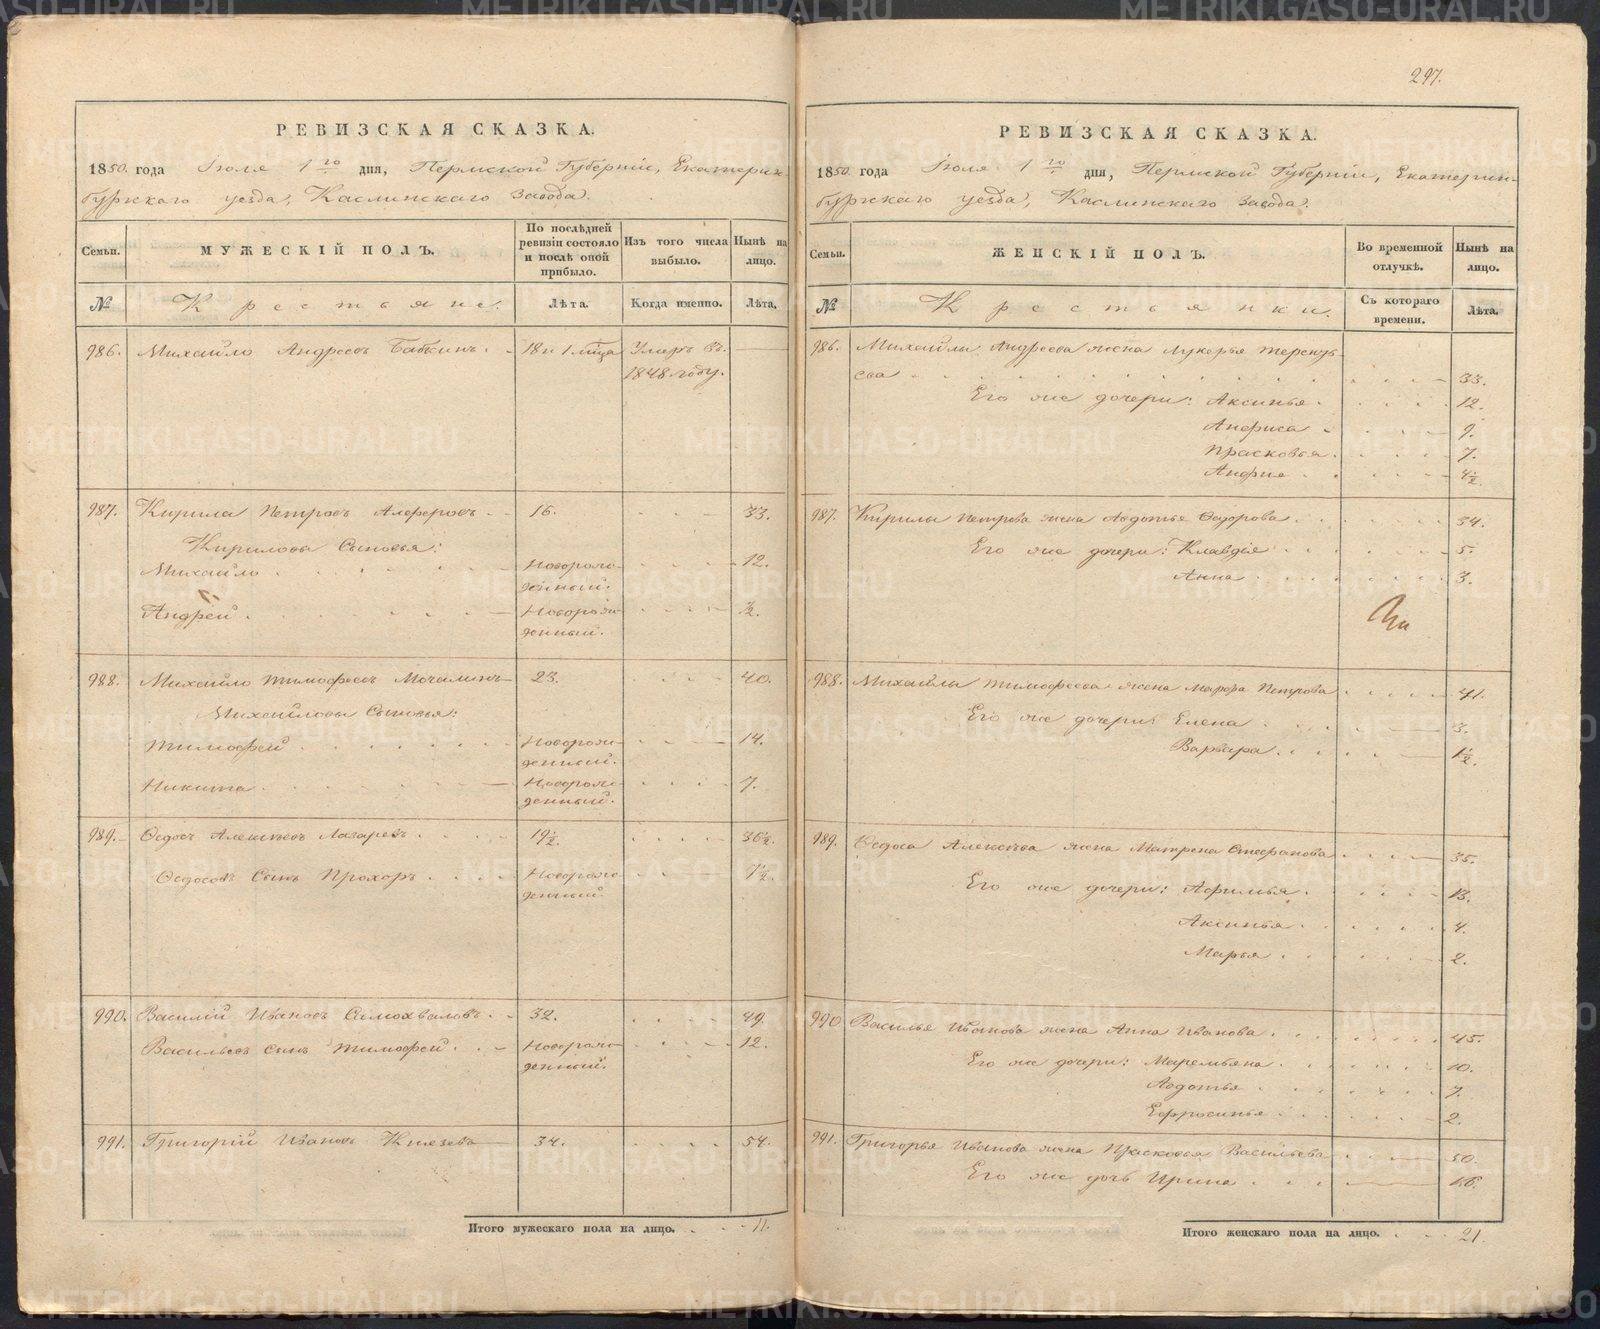 297.
РЕВИЗСКАЯ СКАЗКА.
1850 года Июля 1го дня, Пермской Губерніи, Екатерин-
бургскаго уезда, Каслинскаго Завода.
Семьи.
МУЖЕСКІЙ ПОЛЪ.
По послѣдней ревизіи состояло и послѣ оной прибыло.
Изъ того числа выбыло.
Нынѣ на лицо.
№
Крестьяне.
Лѣта.
Когда именно.
Лѣта.
986. Михайло Андреевъ Бабкинъ. 18 и 1 м҃ца Умеръ въ
1848 году.
987. Кирила Петровъ Алферовъ 16. 33.
Кириловы Сыновья:
Михайло Новорож- 12.
денный.
Андрей Новорож- ½.
денный.
988. Михайло Тимофеевъ Мочалинъ 23. 40.
Михайловы Сыновья:
Тимофей Новорож- 14.
денный.
Никита Новорож- 7.
денный.
989. Ѳедосъ Алексѣевъ Лазаревъ 19½. 36½.
Ѳедосовъ Сынъ Прохоръ Новорож- 7½.
денный.
990. Василій Ивановъ Самохваловъ 32. 49.
Васильевъ сынъ Тимофей Новорож- 12.
денный.
991. Григорій Ивановъ Князева 34. 54.
Итого мужескаго пола на лицо. 11.
РЕВИЗСКАЯ СКАЗКА.
1850 года Июля 1го дня, Пермской Губерніи, Екатерин-
бургскаго уезда, Каслинскаго Завода.
Семьи.
ЖЕНСКІЙ ПОЛЪ.
Во временной отлучкѣ.
Нынѣ на лицо.
№
Крестьянки.
Съ котораго времени.
Лѣта.
986. Михайлы Андреева жена Лукерья Терентье-
ева 33.
Его же дочери: Аксинья 12.
Анфиса 9.
Прасковья 7.
4½.
987. Кирилы Петрова жена Авдотья Ѳедорова 34.
Его же дочери: Клавдія 5.
Анна 3.
988. Михайлы Тимофеева жена Мавра Петрова 41.
Его же дочери: Елена 3.
Варвара 1½.
989. Ѳедоса Алексѣева жена Матрена Стефанова 35.
Его же дочери: Афимья 13.
Аксинья 4.
Марья 2.
990 Василья Иванова жена Анна Иванова 45.
Его же дочери: Маремьяна 10.
Авдотья 7.
Ефросинья 2.
991. Григорья Иванова жена Прасковья Васильева 50.
Его же дочь Ирина 16.
Итого женскаго пола на лицо. 21.
METRIKI.GASO-URAL.RU